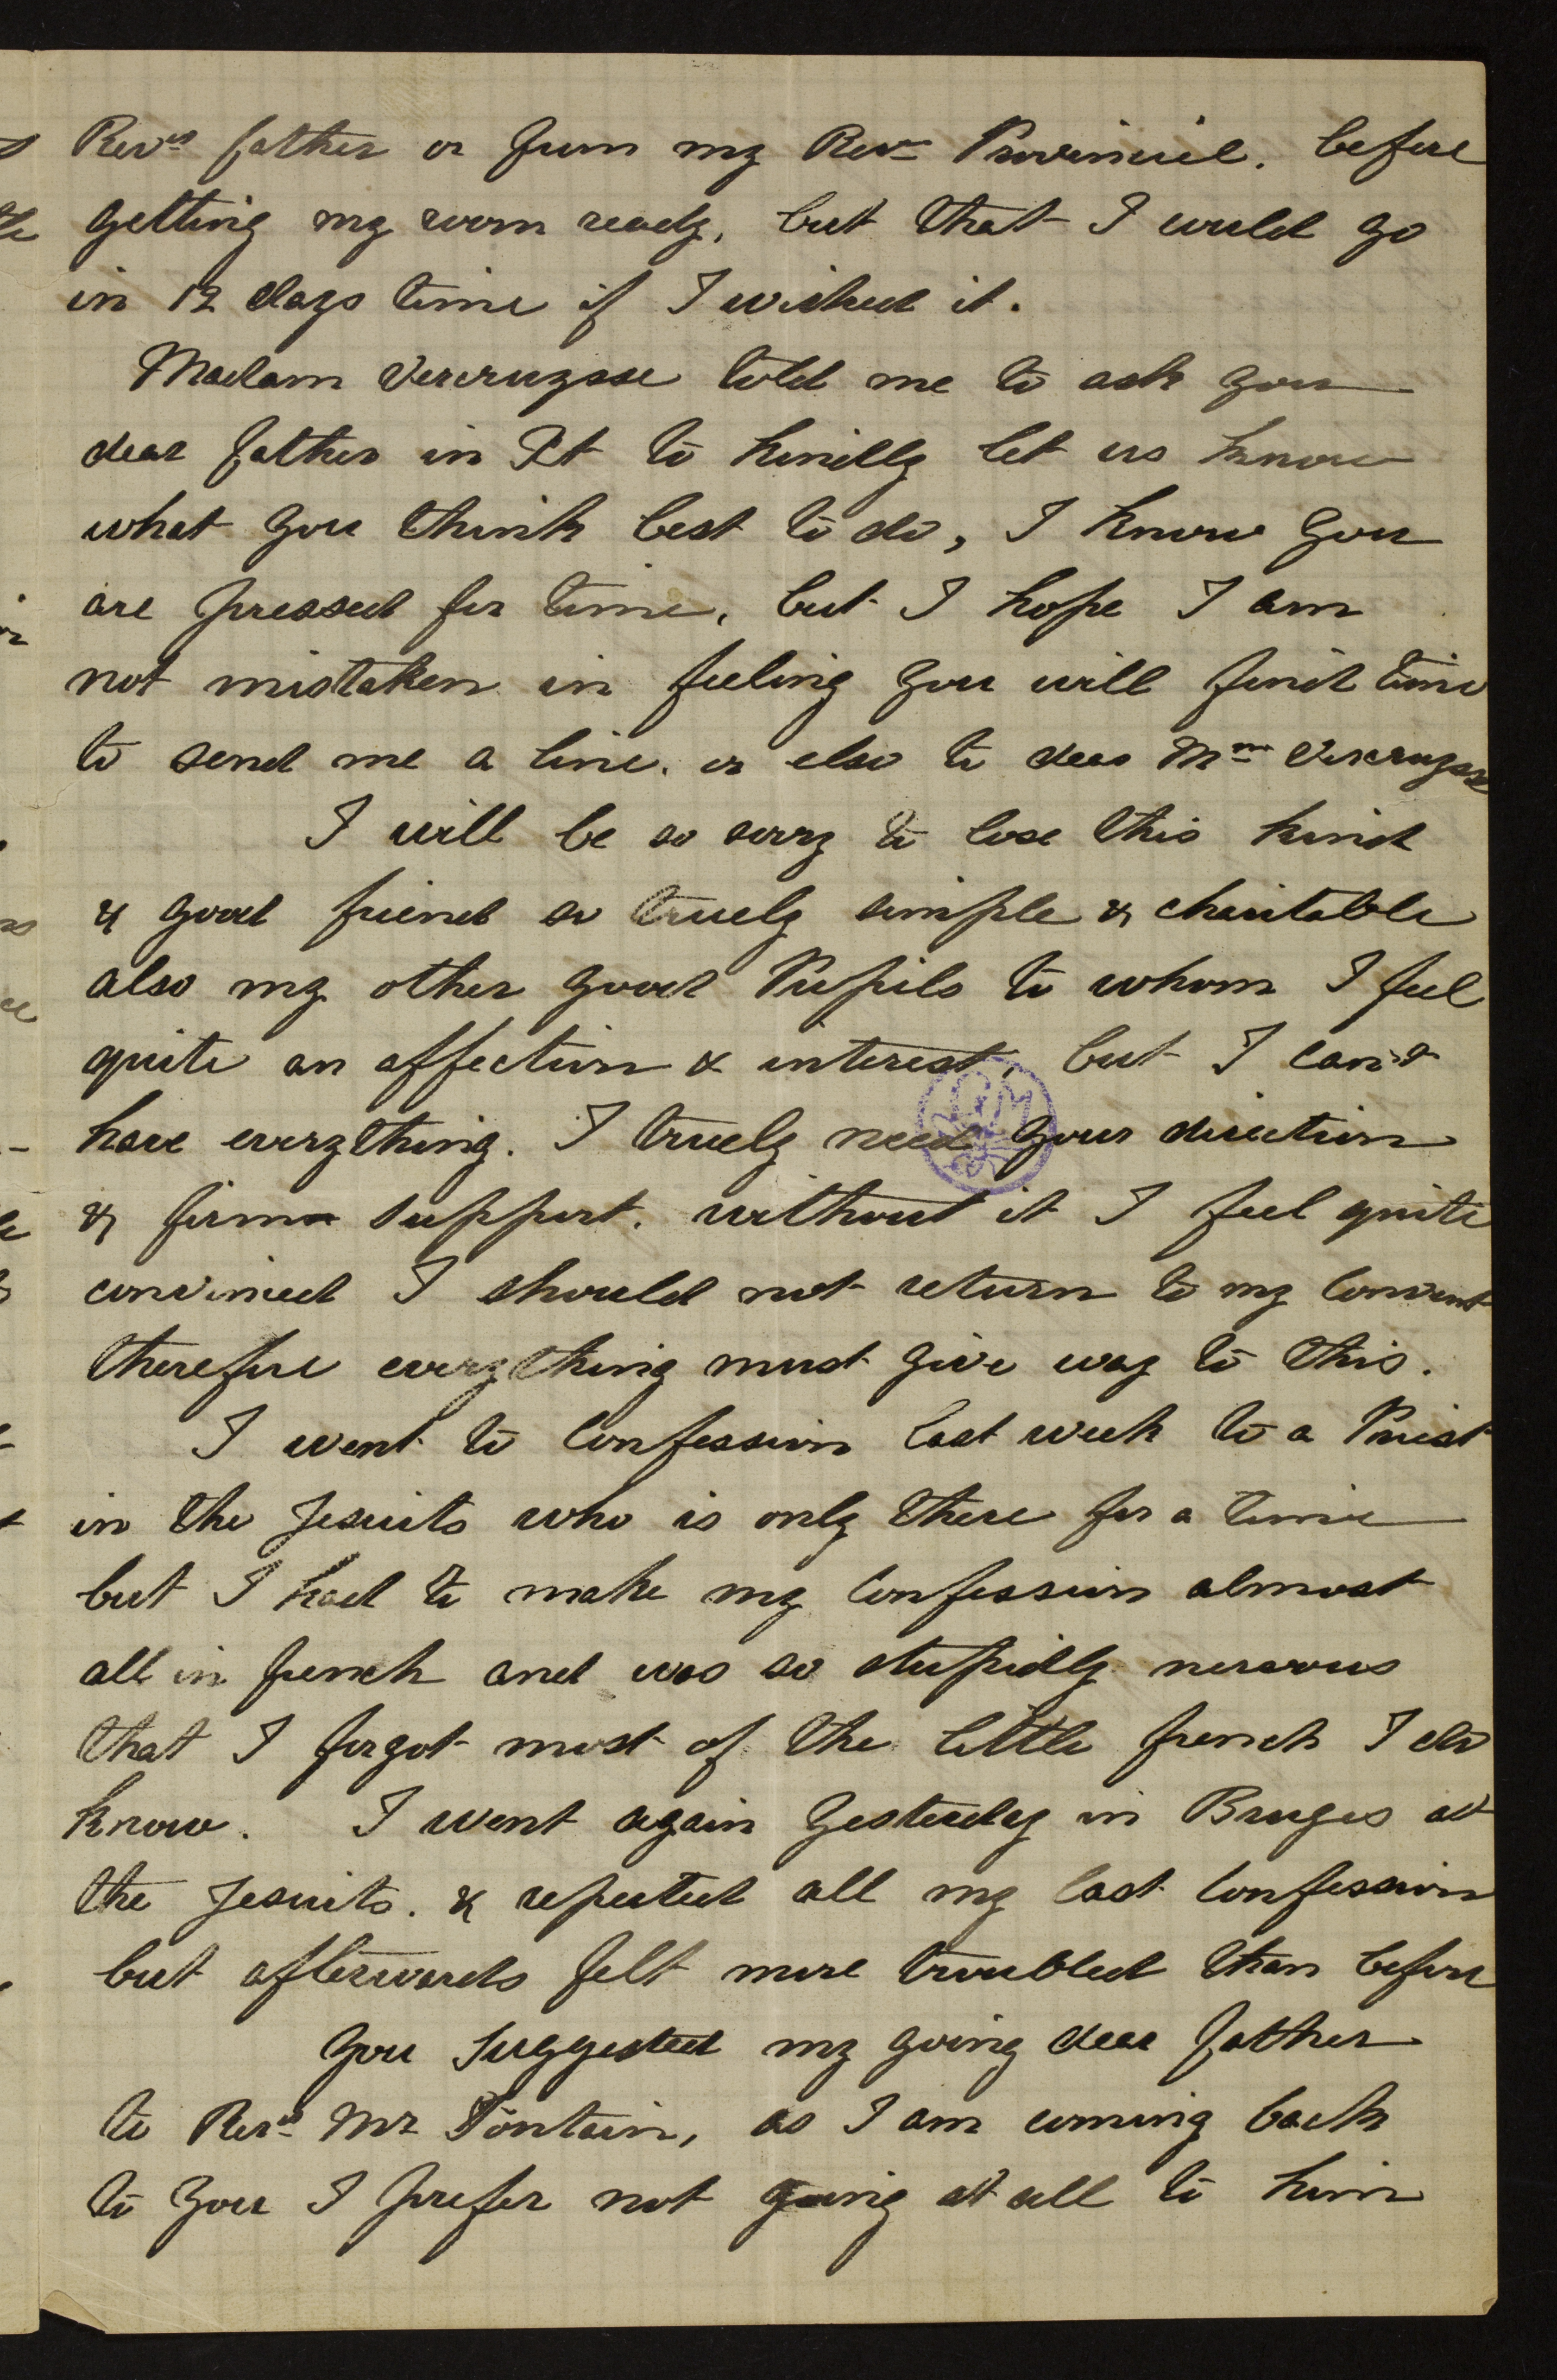 Revd father or from my Revd Provincial. before
getting my room ready, but that I would go
in 12 days time if I wished it.
Madam Vercruysse told me to ask you
dear father in Xt to kindly let us know
what you think best to do, I know you
are pressed for time, but I hope I am
not mistaken in feeling you will find time
to send me a line. or else to dear Mme Vercruysse
I will be so sorry to lose this kind
& good friend so truely simple & charitable
also my other good Pupils to whom I feel
quite an affection & interest, but I can't
have everything. I truely need your direction
& firm support. without it I feel quite
convinced I should not return to my Convent
therefore everything must give way to this.
I went to Confession last week to a Priest
in the Jesuits who is only there for a time
but I had to make my Confession almost
all in french and was so stupidly nervous
that I forgot most of the little french I do
know. I went again yesterday in Bruges at
the Jesuits. & repeated all my last Confession
but afterwards felt more troubled than before
you suggested my going dear father
to Revd Mr Fontain, as I am coming back
to you I prefer not going at all to him